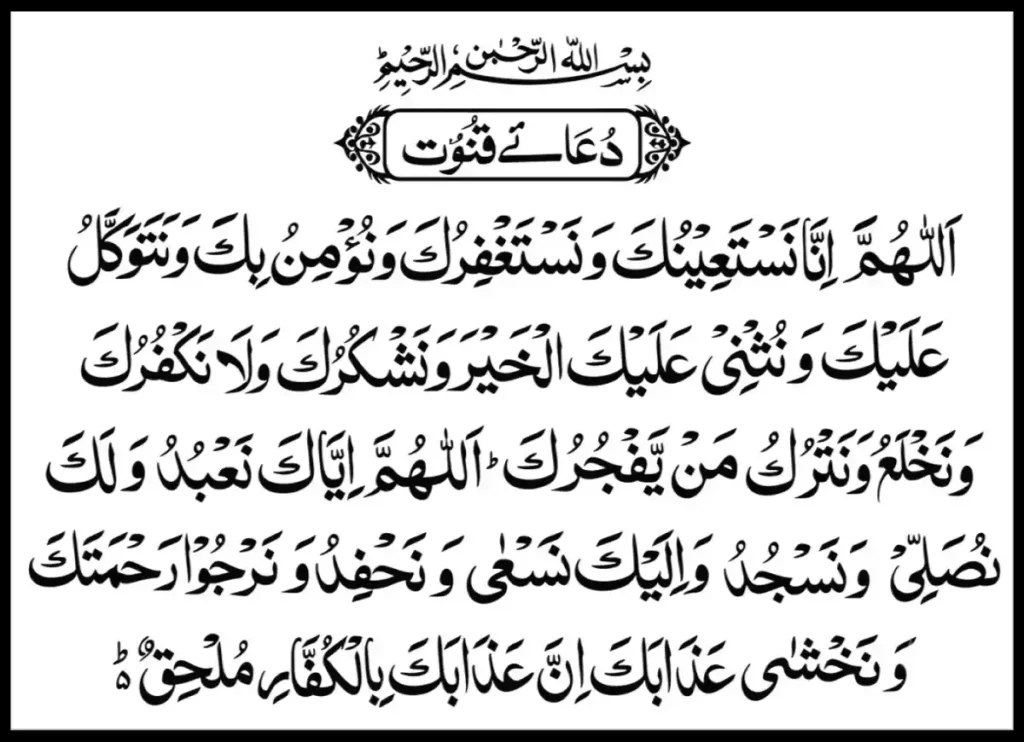 بِسْمِ اللّٰهِ الرَّحْمٰنِ الرَّحِيْمِ
دُعَائے قُنُوْت
اَللّٰهُمَّ اِنَّا نَسْتَعِيْنُكَ وَنَسْتَغْفِرُكَ وَنُؤْمِنُ بِكَ وَنَتَوَكَّلُ
عَلَيْكَ وَنُثْنِىْ عَلَيْكَ الْخَيْرَ وَنَشْكُرُكَ وَلَا نَكْفُرُكَ
وَنَخْلَعُ وَنَتْرُكُ مَنْ يَّفْجُرُكَ ؕ اَللّٰهُمَّ اِيَّاكَ نَعْبُدُ وَلَكَ
نُصَلِّىْ وَنَسْجُدُ وَاِلَيْكَ نَسْعٰى وَنَحْفِدُ وَنَرْجُوْا رَحْمَتَكَ
وَنَخْشٰى عَذَابَكَ اِنَّ عَذَابَكَ بِالْكُفَّارِ مُلْحِقٌ ؕ۵